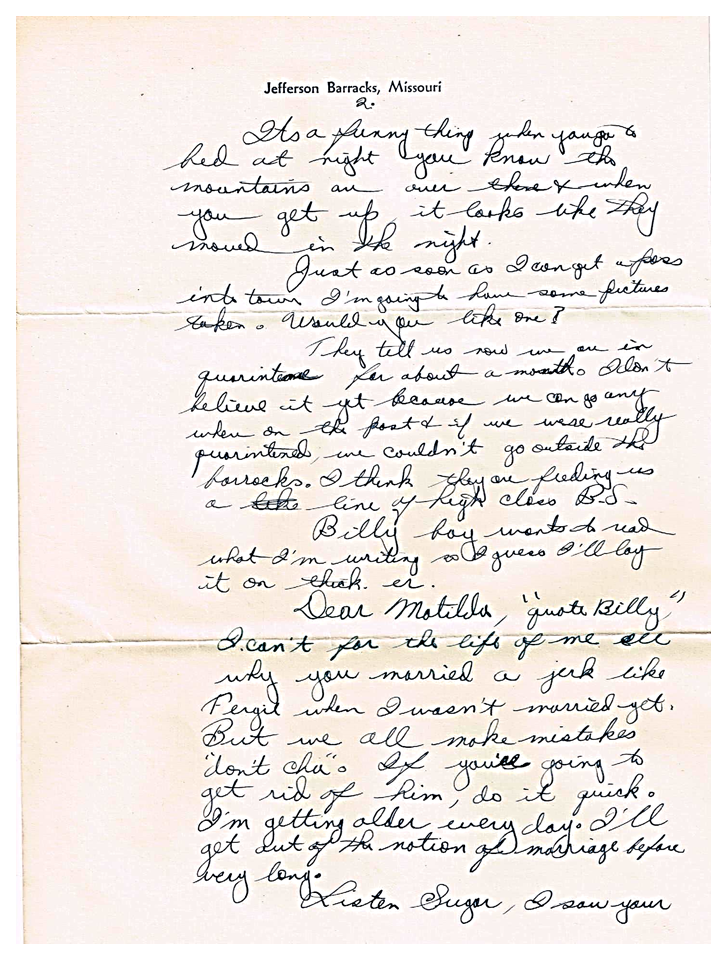 Jefferson Barracks, Missouri
2.
Its a funny thing when you go to
bed at night you know the
mountains are over there & when
you get up, it looks like they
moved in the night.
Just as soon as I can get a pass
into town I'm going to have some pictures
taken. Would you like one?
They tell us now we are in
quarintene for about a month. I don't
believe it yet because we can go any
where on the post & if we were really
quarintened, we couldn't go outside the
barracks. I think they are feeding us
a line of high class B.S.
Billy boy wants to read
what I'm writing so I guess I'll lay
it on thick. er.
Dear Matilda, "quote Billy"
I can't for the life of me see
why you married a jerk like
Fergie when I wasn't married yet.
But we all make mistakes
"don't cha". If you're going to
get rid of him, do it quick.
I'm getting older every day. I'll
get out of the notion of marriage before
very long.
Listen Sugar, I saw your